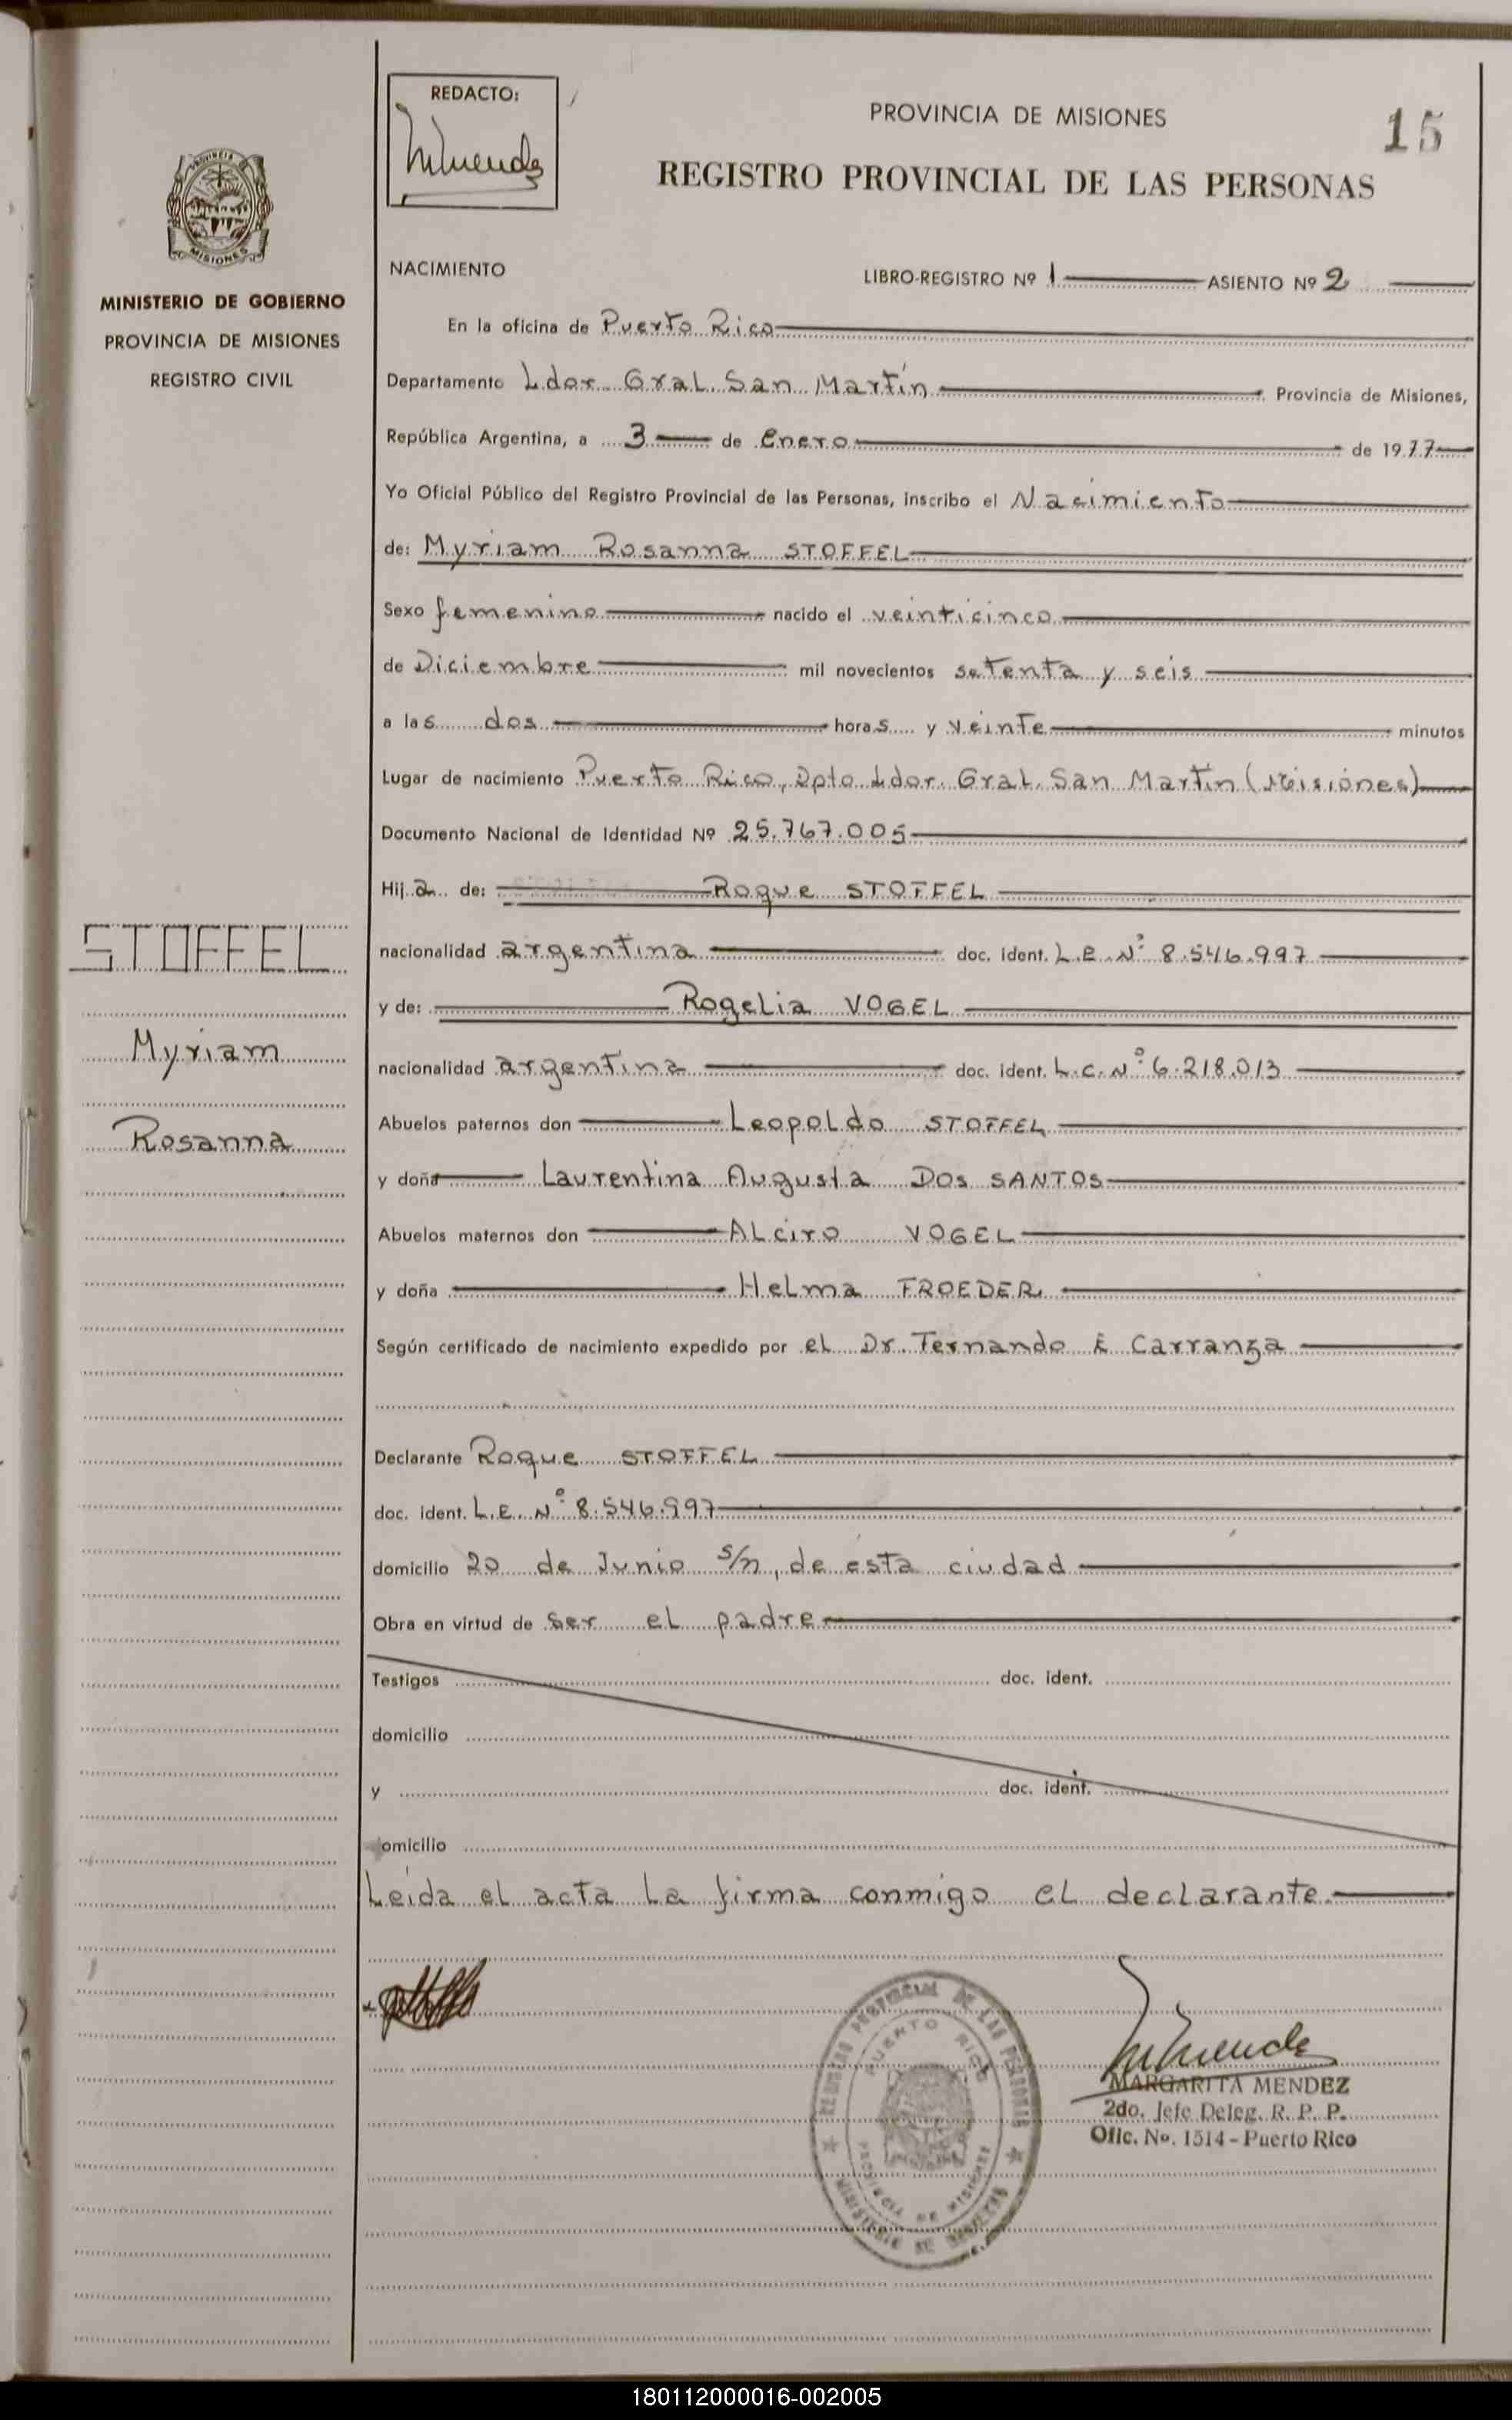 REDACTO:
PROVINCIA DE MISIONES
15
REGISTRO PROVINCIAL DE LAS PERSONAS
MISIONES
MINISTERIO DE GOBIERNO
PROVINCIA DE MISIONES
REGISTRO CIVIL
NACIMIENTO
LIBRO-REGISTRO Nº 1 ASIENTO Nº 2
En la oficina de Puerto Rico
Departamento Ldor Gral San Martín Provincia de Misiones,
República Argentina, a 3 de Enero de 1977
Yo Oficial Público del Registro Provincial de las Personas, inscribo el Nacimiento
de: Myriam Rosanna STOFFEL
Sexo femenino nacido el veinticinco
de Diciembre mil novecientos setenta y seis
a las dos horas y veinte minutos
Lugar de nacimiento Puerto Rico, Dpto Ldor. Gral. San Martín (Misiones)
Documento Nacional de Identidad Nº 25.767.005
Hija de: Roque STOFFEL
nacionalidad argentina doc. ident. L.E. Nº 8.546.997
y de: Rogelia VOGEL
nacionalidad argentina doc. ident. L.C. Nº 6.218.013
Abuelos paternos don Leopoldo STOFFEL
y doña Laurentina Augusta DOS SANTOS
Abuelos maternos don ALciro VOGEL
y doña Helma FROEDER
Según certificado de nacimiento expedido por el Dr. Fernando E Carranza
Declarante Roque STOFFEL
doc. ident. L.E. Nº 8.546.997
domicilio 20 de Junio s/n, de ésta ciudad
Obra en virtud de ser el padre
Testigos doc. ident.
domicilio
y doc. ident.
omicilio
Leída el acta la firma conmigo el declarante.
STOFFEL
Myriam
Rosanna
REGISTRO PROVINCIAL DE LAS PERSONAS
PUERTO RICO
PROVINCIA DE MISIONES
MINISTERIO DE GOBIERNO
MARGARITA MENDEZ
2do. Jefe Deleg. R. P. P.
Ofic. Nº. 1514 - Puerto Rico
180112000016-002005